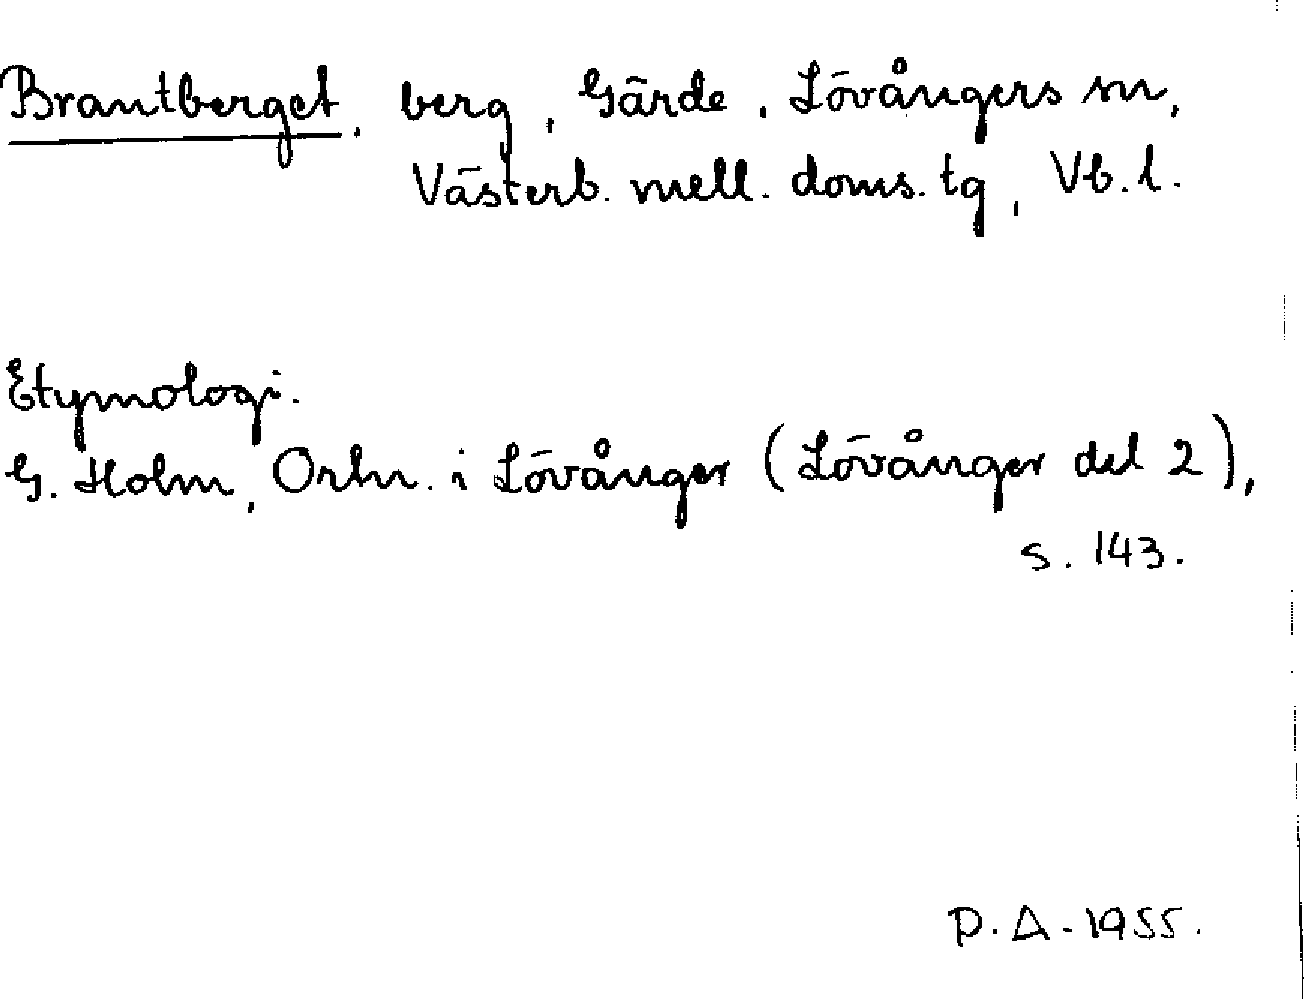 Brantberget, berg, Gärde, Lövångers sn,
Västerb. mell. doms. tg, Vb. l.
Etymologi.
G. Holm, Ortn. i Lövånger (Lövånger del 2),
s. 143.
P. A. 1955.